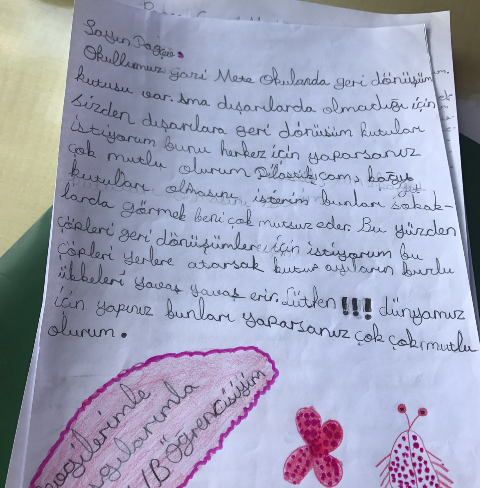 Sayın
Okullumuz gazi Mete Okulanda geri dönüşüm
kutusu var. Ama dışarılarda olmadığı için
Sizden dışarılara geri dönüşüm kutuları
istiyorum bunu herkez için yaparsanız
çok mutlu olurum Pilastik, cam, kağıt
kutulları olmasını isterim bunları sokak-
larda görmek beni çok mutsuz eder. Bu yüzden
çöpleri geri dönüşümleri için istiyorum bu
çöpleri yerlere atarsak kutup ayıların buzlu
ülkeleri yavaş yavaş erir. Lütfen !!! dünyamız
için yapınız bunları yaparsanız çok çok mutlu
olurum.
/B öğrencisiyim